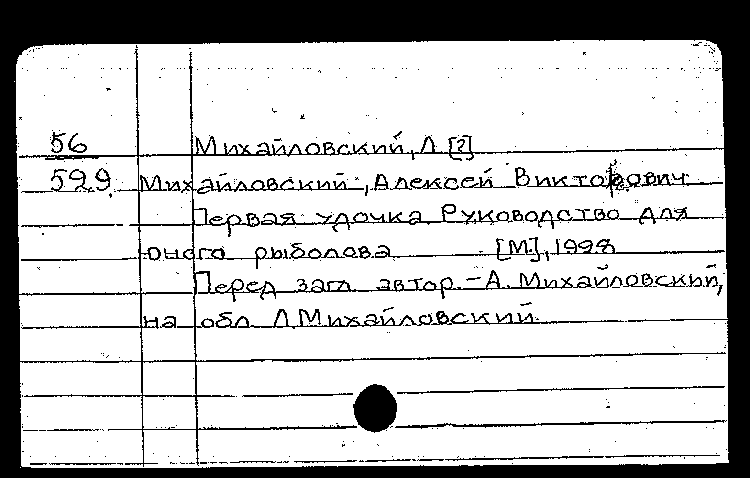 56 Михайловский, Л [?]
529 Михайловский, Алексей Викторович
Первая удочка Руководство для
юного рыболова [М], 1998
Перед загл автор – А. Михайловский,
на обл Л.Михайловский